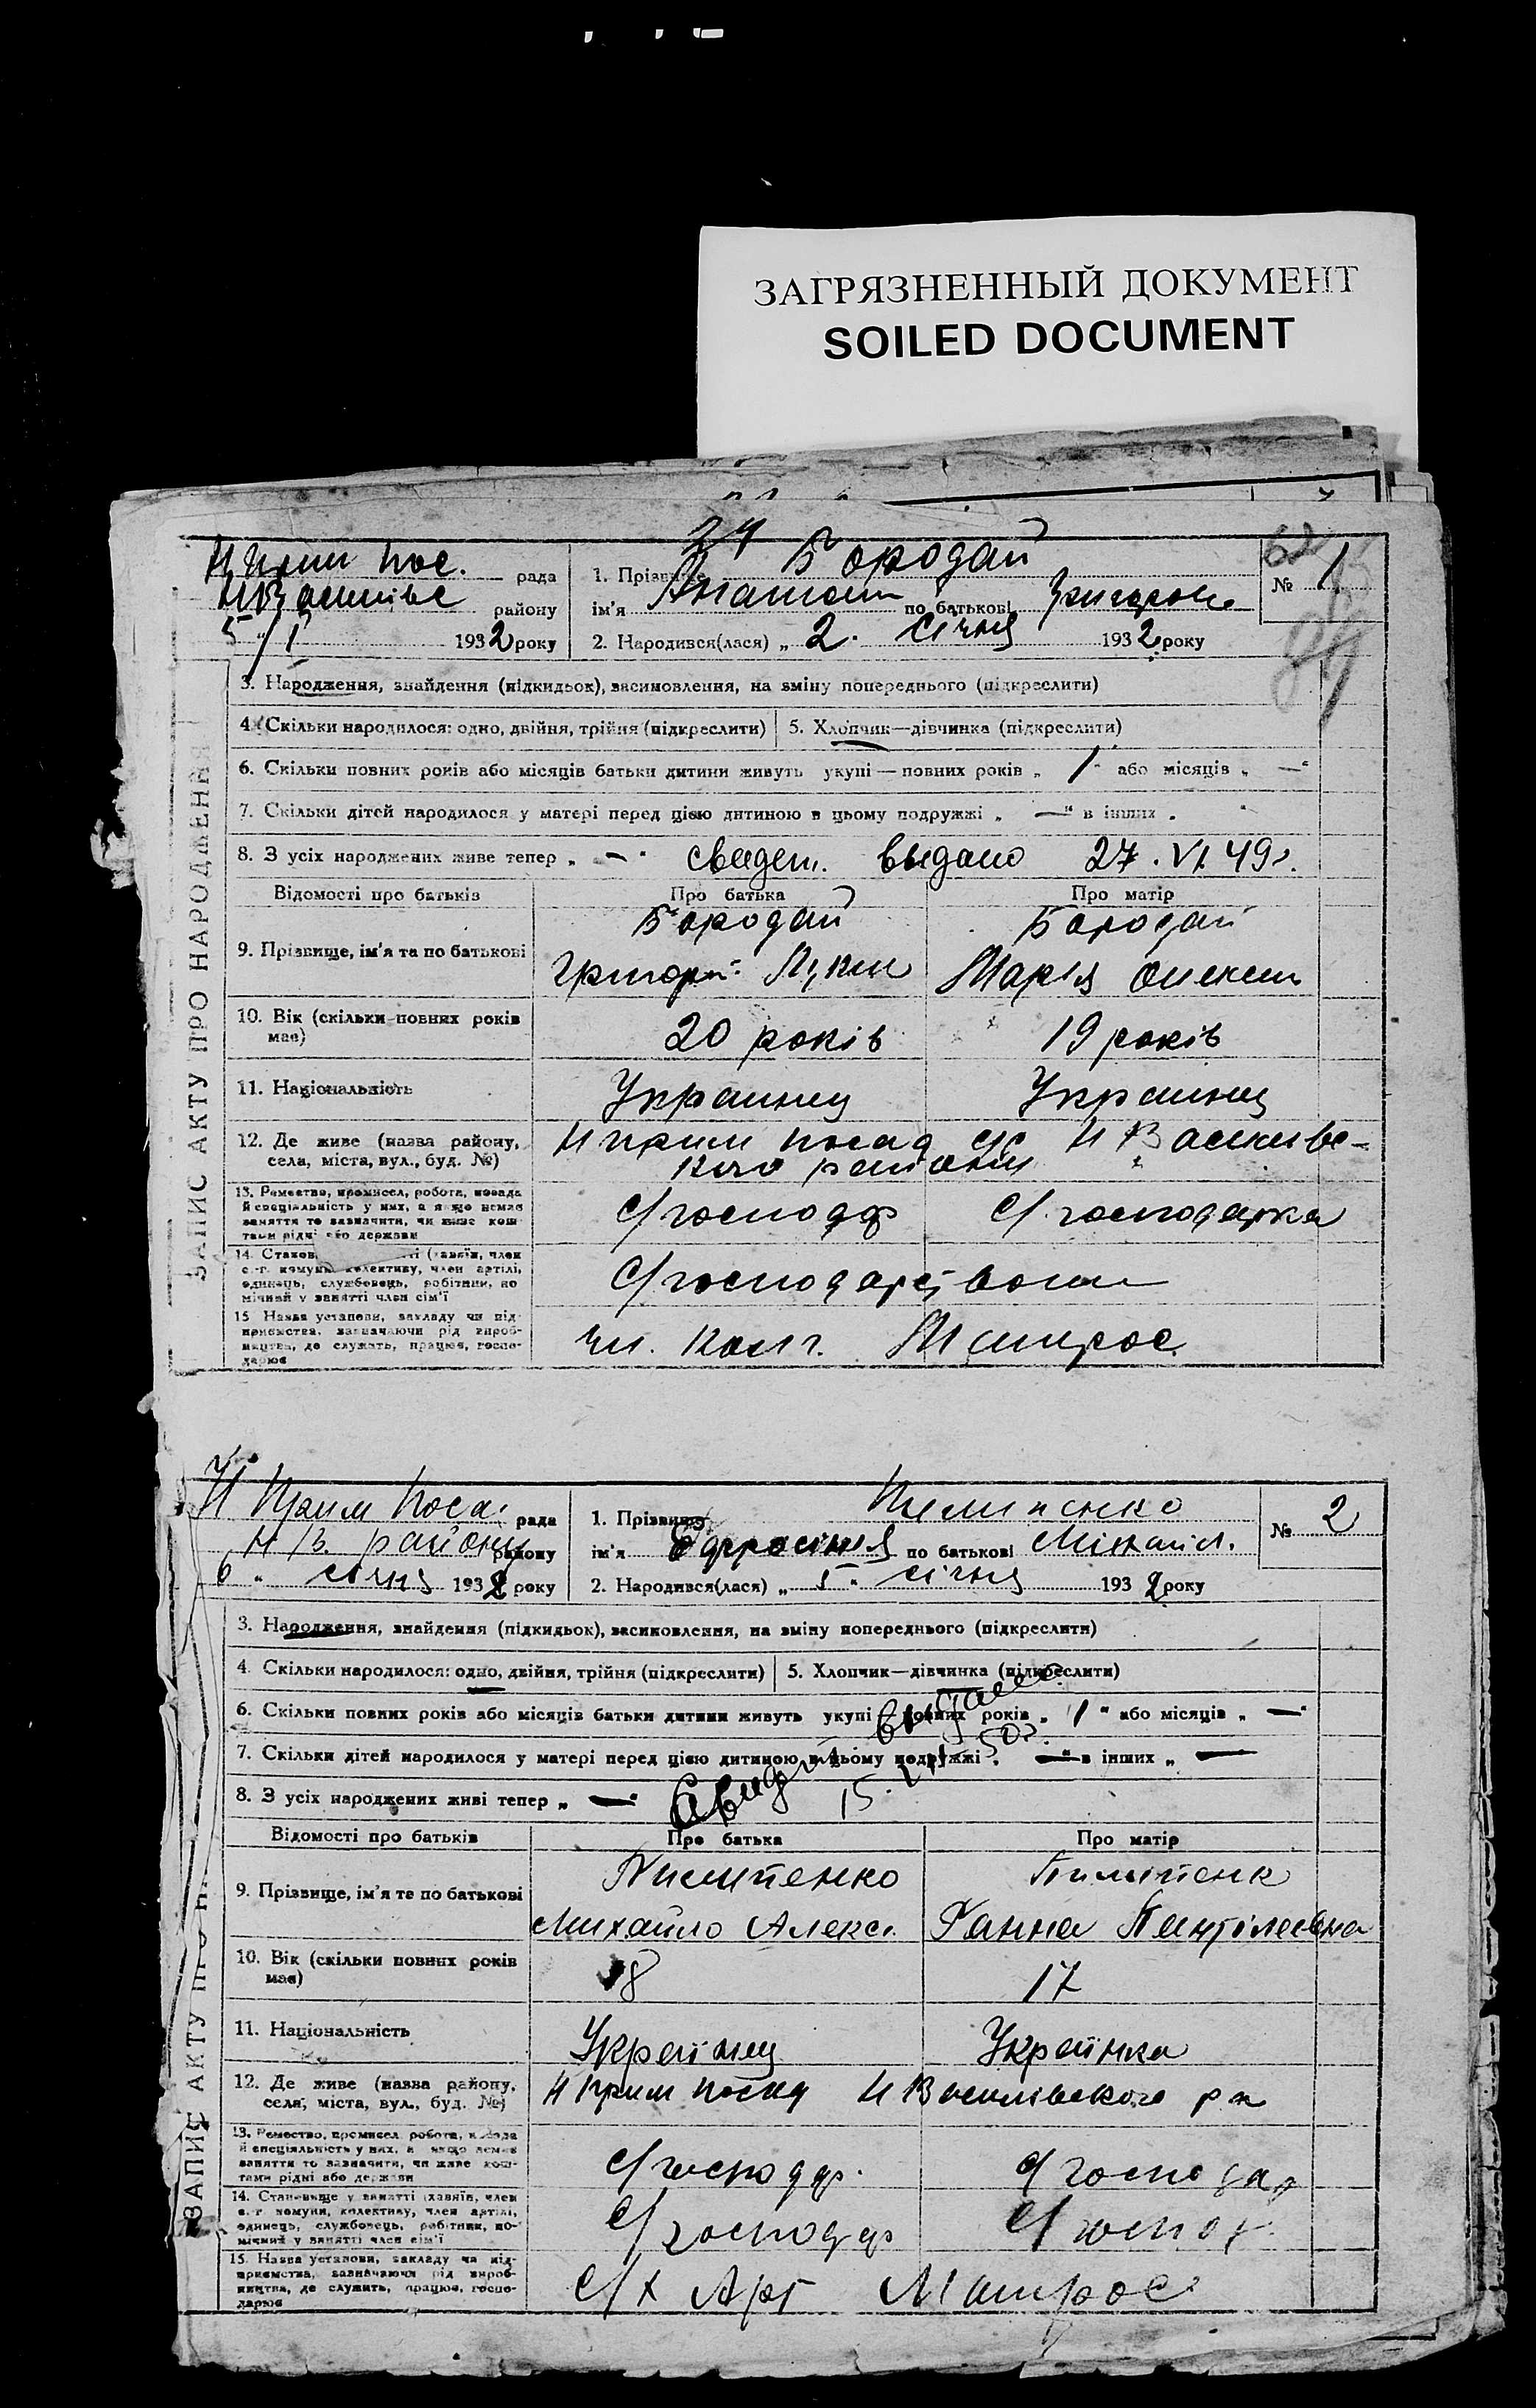 ЗАГРЯЗНЕННЫЙ ДОКУМЕНТ
SOILED DOCUMENT
ЗАПИС АКТУ ПРО НАРОДЖЕННЯ
Н Прим Пос. рада
района
5/I 1932 року
24
1. Прізвище Бородай
ім'я по батькові
2. Народився(лася) „ 2. січня 1932 року
62
№ 1
3. Народження, знайдення (підкидьок), всиновлення, на зміну попереднього (підкреслити)
4. Скільки народилося: одно, двійня, трійня (підкреслити)
5. Хлопчик—дівчинка (підкреслити)
6. Скільки повних років або місяців батьки дитини живуть укупі — повних років „ 1 " або місяців „ — "
7. Скільки дітей народилося у матері перед цією дитиною в цьому подружжі „ — " в інших „
8. З усіх народжених живе тепер „ — " свидет. выдано 27. VI. 49г.
Відомості про батьків
Про батька
Про матір
9. Прізвище, ім'я та по батькові
Бородай
Бородай
Марія Олексі
10. Вік (скільки повних років має)
20 років
19 років
11. Національність
Украинец
Украинец
12. Де живе (назва району, села, міста, вул., буд. №)
Н Прим посад с/с Н Василівс-
кого району
13. Ремество, промисел, робота, посада
й спеціяльність у них, а якщо немає
заняття то зазначити, чи живе кош
тами рідні або держави
С/господар
С/господарка
14. (хазяїн, член
с.-г. комуни, колективу, член артілі,
одинець, службовець, робітник, по
мічний у занятті член сім'ї
С/господарством
15. Назва установи, закладу чи під
приємства, зазначаючи рід вироб-
ництва, де служить, працює, госпо-
дарює
чл. колг. Матрос
Н Прим Поса. рада
Н В. району району
6 " січня 1932 року
1. Прізвище Пилипенко
ім'я Ефросінія по батькові Міхайл.
2. Народився(лася) „ 5 " січня 1932 року
№ 2
ЗАПИС АКТУ ПРО
3. Народження, знайдення (підкидьок), всиновлення, на зміну попереднього (підкреслити)
4. Скільки народилося: одно, двійня, трійня (підкреслити)
5. Хлопчик—дівчинка (підкреслити)
6. Скільки повних років або місяців батьки дитини живуть укупі — повних років „ 1 " або місяців „ — "
7. Скільки дітей народилося у матері перед цією дитиною в цьому подружжі „ — " в інших „ —
8. З усіх народжених живі тепер „ — "
Свидет. выдано
15. 50г.
Відомості про батьків
Про батька
Про матір
9. Прізвище, ім'я те по батькові
Пилипенко
Пилипенк
Михайло Алекс.
Ганна Пантілеєвна
10. Вік (скільки повних років має)
18
17
11. Національність
Українец
Українка
12. Де живе (назва району, села, міста, вул., буд. №)
Н Прим посад Н Василівського р н
13. Ремество, промисел, робота, посада
й спеціяльність у них, а якщо немає
заняття то зазначити, чи живе кош-
тами рідні або держави
С/господар.
С/господар
14. Становище у занятті (хазяїн, член
с.-г. комуни, колективу, член артілі,
одинець, службовець, робітник, по-
мічний у занятті член сім'ї
С/господар
С/господ
15. Назва установи, закладу чи під-
приємства, зазначаючи рід вироб-
ництва, де служить, працює, госпо-
дарює
С/х Арт Матрос